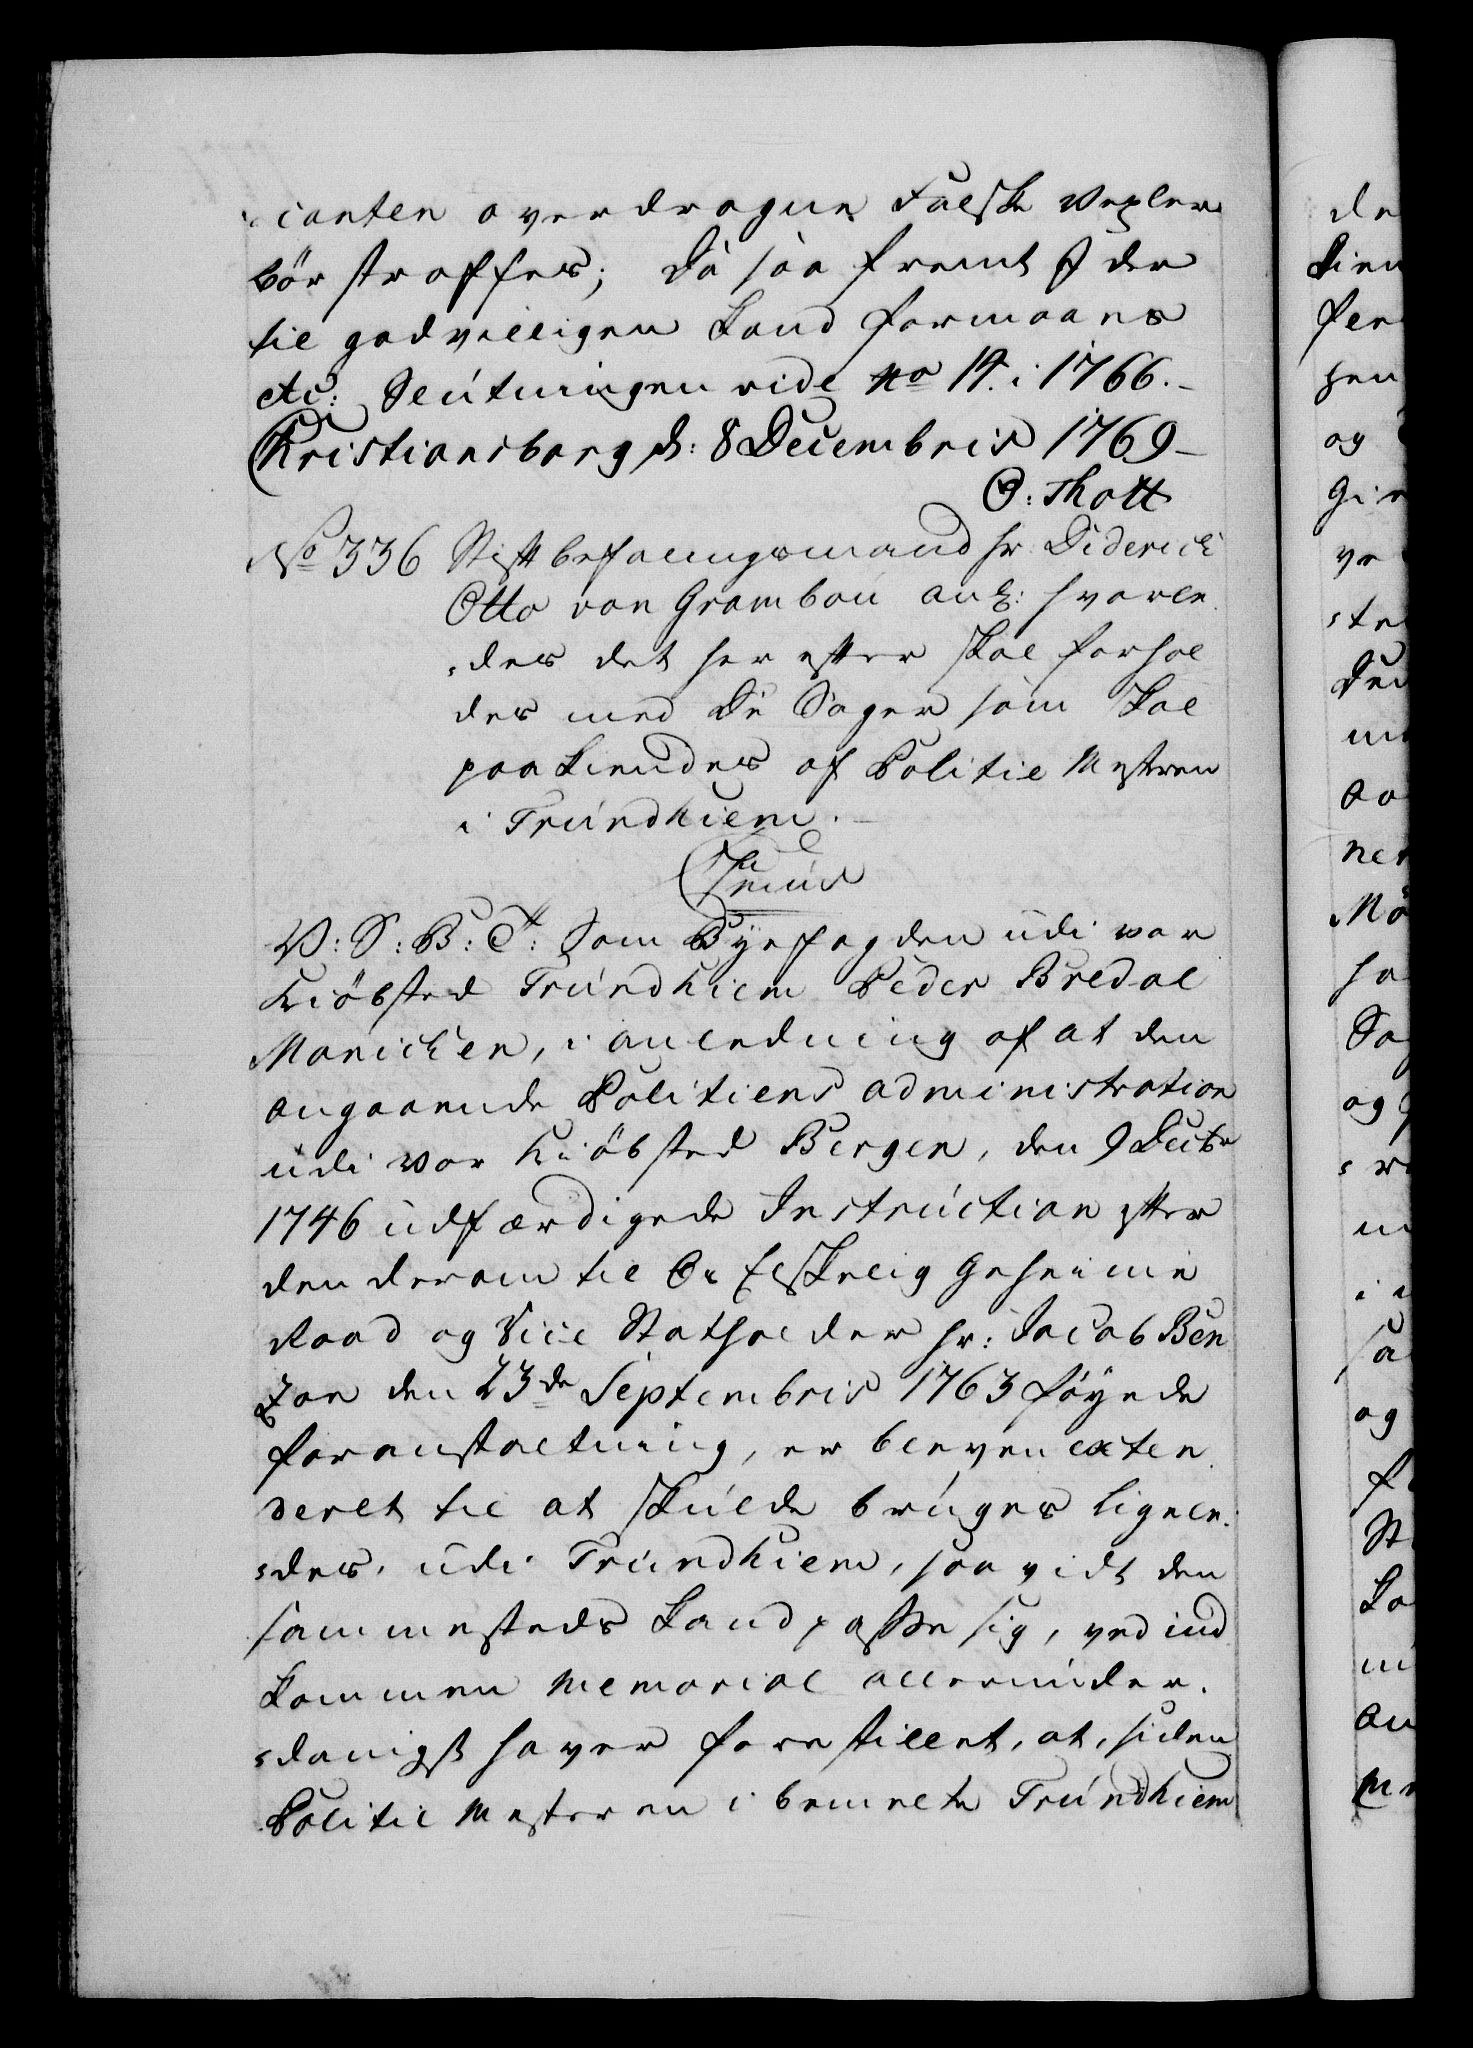 icanten overdragne Falske Vexler
bör straffes; Da saa fremt I der
til godvilligen Kand formaaes
etc: Slutningen vide No 14. i 1766.-
Christiansborg d: 8 Decembris 1769-
O: Thott
No 336 Stiftbefalingsmand hr: Diderich
Otto von Grambou ank: hvorle
-des det her efter skal forhol
des med De Sager som skal
paakiendes af Politie Mestren
i Trundhiem.-
C 7mus
V: S: B: T: Som Byefogden udi vor
Kiöbsted Trundhiem Peder Bredal
Manicher, i anledning af at den
angaaende Politiens administration
udi vor Kiöbsted Bergen, den 9 Decbr
1746 udfærdigede Instruction efter
den derom til Os Elskelig Geheime
Raad og Vice Statholder hr: Jacob Ben
zon den 23de Septembris 1763 föyede
foranstaltning, er bleven exten
deret til at skulde bruges ligele-
-des, udi Trundhiem, saavidt den
sammesteds Kand passe sig, ved ind
kommen Memorial allerunder-
-danigst haver forestillet, at, siden
Politie Mesteren i bemelte Trundhiem